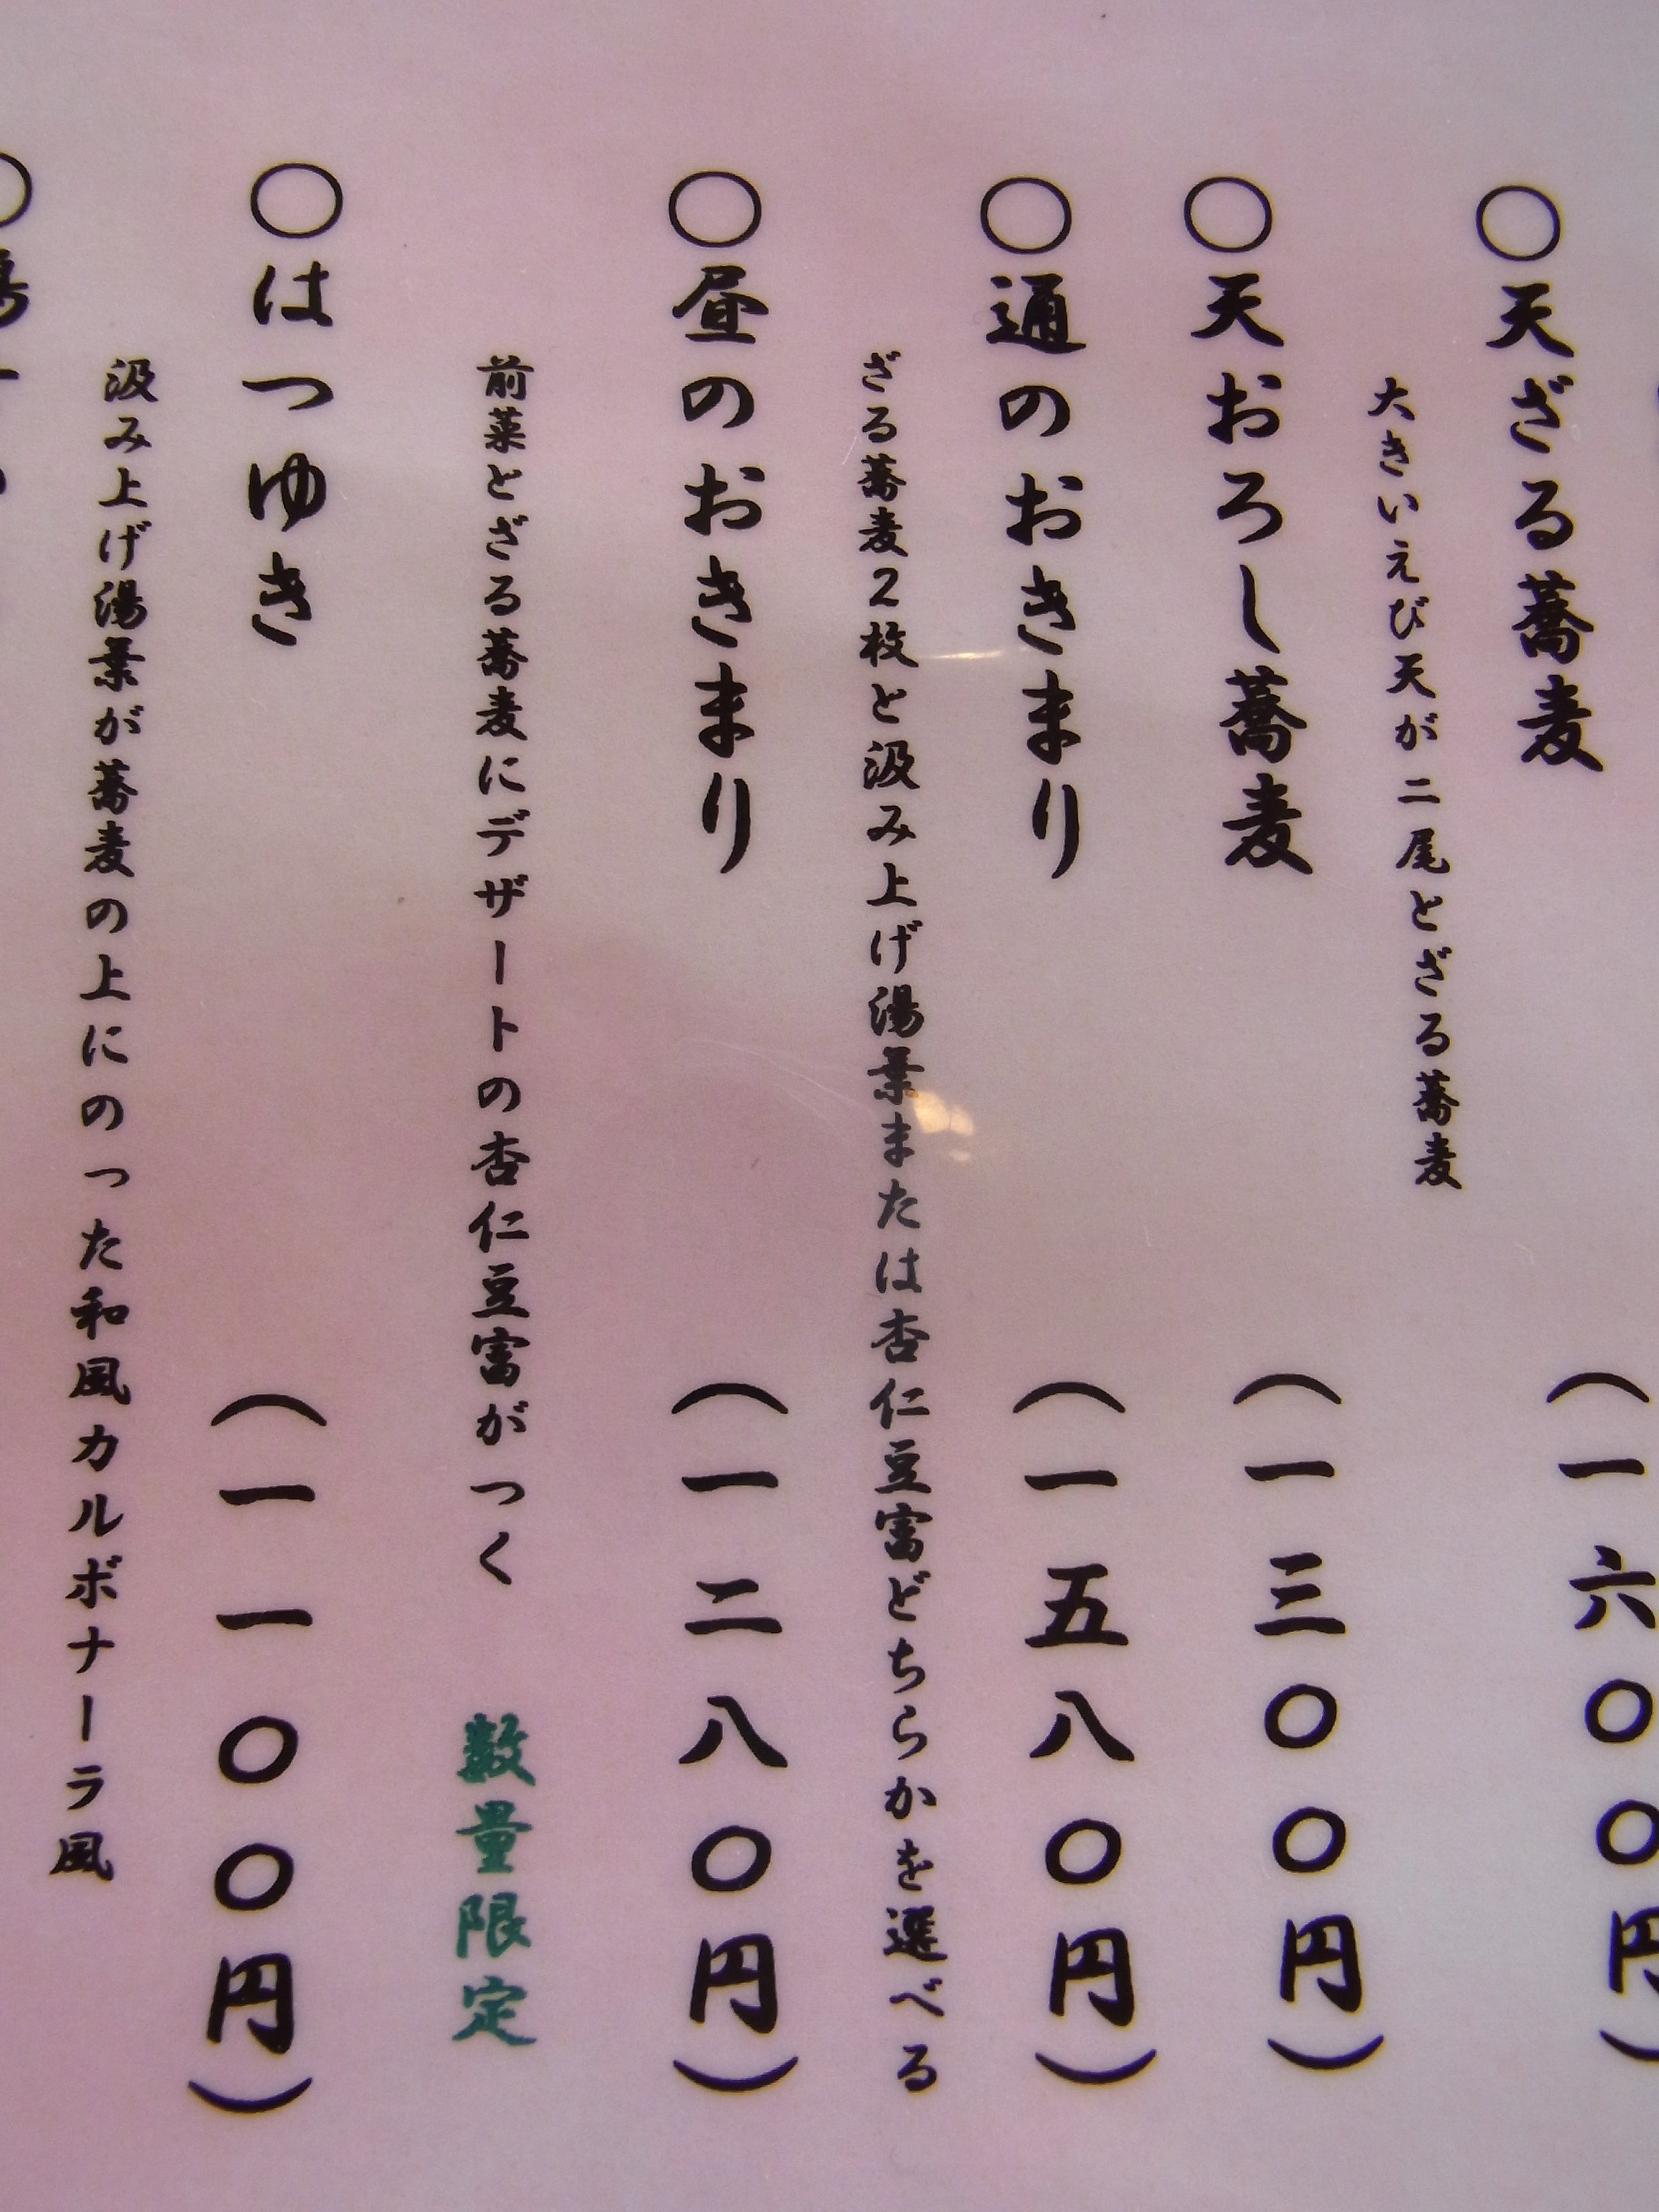 〇天ざる蕎麦 (一六〇〇円)
大きいえび天が二尾とざる蕎麦
〇天おろし蕎麦 (一三〇〇円)
〇通のおきまり (一五八〇円)
ざる蕎麦2枚と汲み上げ湯葉または杏仁豆富どちらかを選べる
〇昼のおきまり (一二八〇円)
前菜とざる蕎麦にデザートの杏仁豆富がつく 数量限定
〇はつゆき (一一〇〇円)
汲み上げ湯葉が蕎麦の上にのった和風カルボナーラ風